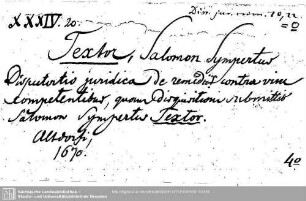 XXXIV. 20. Diss. jur. rom. 10,22
=0
Textor, Salomon Sympertus
Disputatio juridica De remediis contra vim
competentibus, quam Disquisitioni submittit
Salomon Sympertus Textor.
Altdorfi,
1670.
4o
Sächsische Landesbibliothek -
Staats- und Universitätsbibliothek Dresden